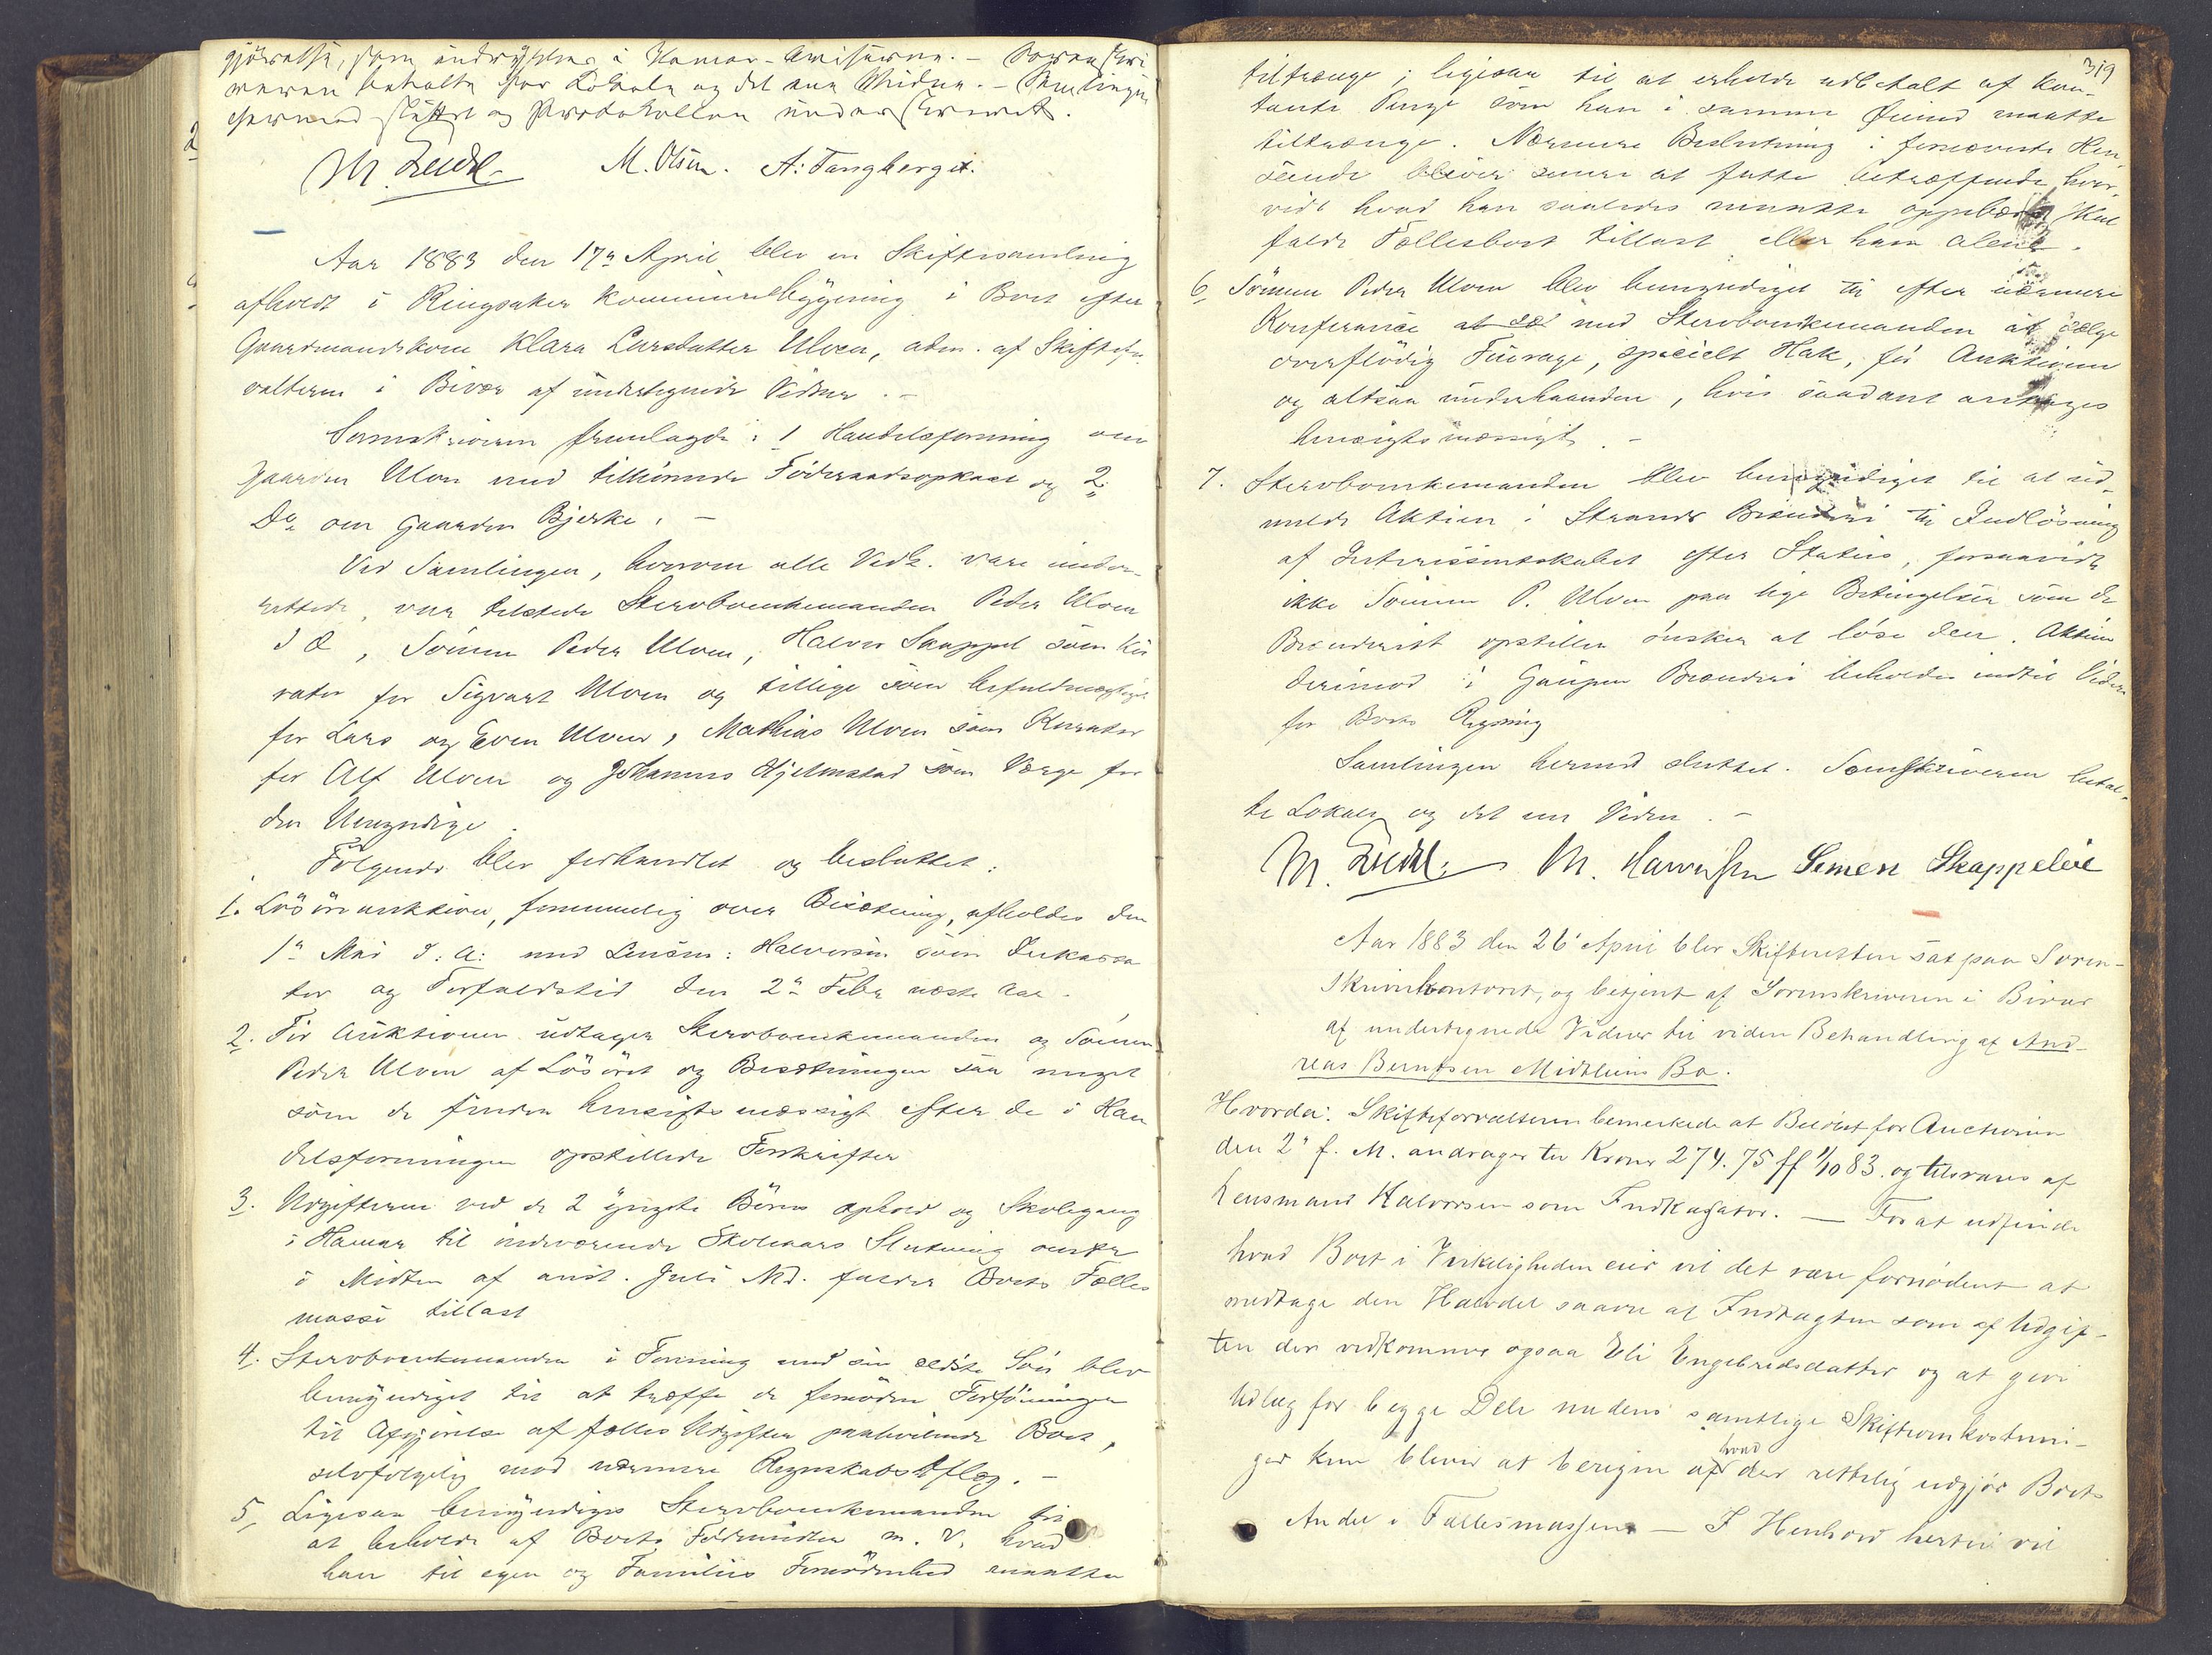 gjørelse, som indrykkes i Hamar-Aviserne. – Sorenskri
veren betalte for Lokale og det ene Vidne. – Samlingen
hermed sluttet og Protokollen underskrevet.
M. Olsen. A. Tangberget.
Aar 1883 den 17n April blev en Skiftesamling
afholdt i Ringsaker Kommunebygning i Boet efter
Gaardmandskone Klara Larsdatter Ulven, adm. af Skiftefor-
valteren i Bivær af undertegnede Vidner. –
Sorenskriveren fremlagde: 1 Handelsforening om
Gaarden Ulven med tilhørende Føderaadsopkast og 2
Do om Gaarden Bjerke. –
Ved Samlingen, hvorom alle Vedk. vare under-
rettede, var tilstede Sterbboenkemanden Peder Ulven
d Æ, Sønnen Peder Ulven, Halvor Skappel som Ku
rator for Sigvart Ulven og tillige som befuldmægtiget
for Lars og Even Ulven, Mathias Ulven som Kurator
for Alf Ulven og Johannes Hjelmstad som Værge for
den Umyndige.
Følgende blev forhandlet og besluttet:
1. Løsøreauktion, fornemmelig over Besætning, afholdes den
1n Mai d: A: med Lensm: Halvorsen som Inkassa
tor og Forfaldstid den 2n Febr næste Aar.
2. Før Auktionen udtager Sterbboenkemanden og Sønnen
Peder Ulven af Løsøret og Besætningen saa meget
som de finder hensigtsmæssigt efter de i Han
delsforeningen opstillede Forskrifter
3. Udgifterne ved de 2 yngste Børns Ophold og Skolegang
i Hamar til indeværende Skoleaars Slutning omtr
i Midten af anst. Juli Md. falder Boets Fælles
masse tillast
4. Sterbboenkemanden i Forening med sin ældste Søn blev
bemyndiget til at træffe de fornødne Forføininger
til Afgjørelse af fælles Udgifter paahvilende Boet,
selvfølgelig mod nærmere Regnskabs Aflæg. –
5, Ligesaa bemyndiges Sterbboenkemanden til
at beholde af Boets Fødemidler m. V. hvad
han til egen og Families Fornødenhed maatte
319
tiltrænge; ligesaa til at erholde udbetalt af kon-
tante Penge som han i samme Øiemed maatte
tiltrænge. Nærmere Beslutning i fornævnte Hen-
seende bliver senere at fatte betræffende, hvor-
vidt hvad han saaledes maatte oppebære skal
falde Fællesboet tillast eller ham alene.
6, Sønnen Peder Ulven blev bemyndiget til efter nærmere
Konferance at sæ med Sterbboenkemanden at sælge
overflødig Fourage, specielt Hak, før Auktionen
og altsaa underhaanden, hvis saadant antages
hensigtsmæssigt. –
7. Sterbboenkemanden blev bemyndiget til at ud-
melde Aktien i Strands Brænderi til Indløsning
af Interessentskabet efter Status, forsaavidt
ikke Sønnen P. Ulven paa lige Betingelser som de
Brænderiet opstiller ønsker at løse den. Aktien
derimod i Gaupen Brænderi beholdes indtil Videre
for Boets Regning
Samlingen hermed sluttet. Sorenskriveren betal-
te Lokale og det ene Vidne. –
M. Halvorsen Simen Skappeleie
Aar 1883 den 26' April blev Skifteretten sat paa Soren-
skriverkontoret, og betjent af Sorenskriveren i Bivær
af undertegnede Vidner til viden Behandling af And-
reas Berntsen Midtliens Bo.
Hvorda: Skifteforvalteren bemerkede at Beløbet for Auctionen
den 2' f. M. andrager til Kroner 274.75 ff 1/10 83. og tilsvares af
Lensmand Halvorsen som Indkassator. — For at udfinde
hvad Boet i Virkeligheden eier vil det være fornødent at
medtage den Halvdel saavel af Indtægten som af Udgif-
ten der vedkommer ogsaa Eli Engebredsdatter og at give
Udlæg for begge Dele medens samtlige Skifteomkostnin-
ger kun bliver at beregne af hvad der rettelig udgjør Boets
Andel i Fællesmassen. — I Henhold hertil vil